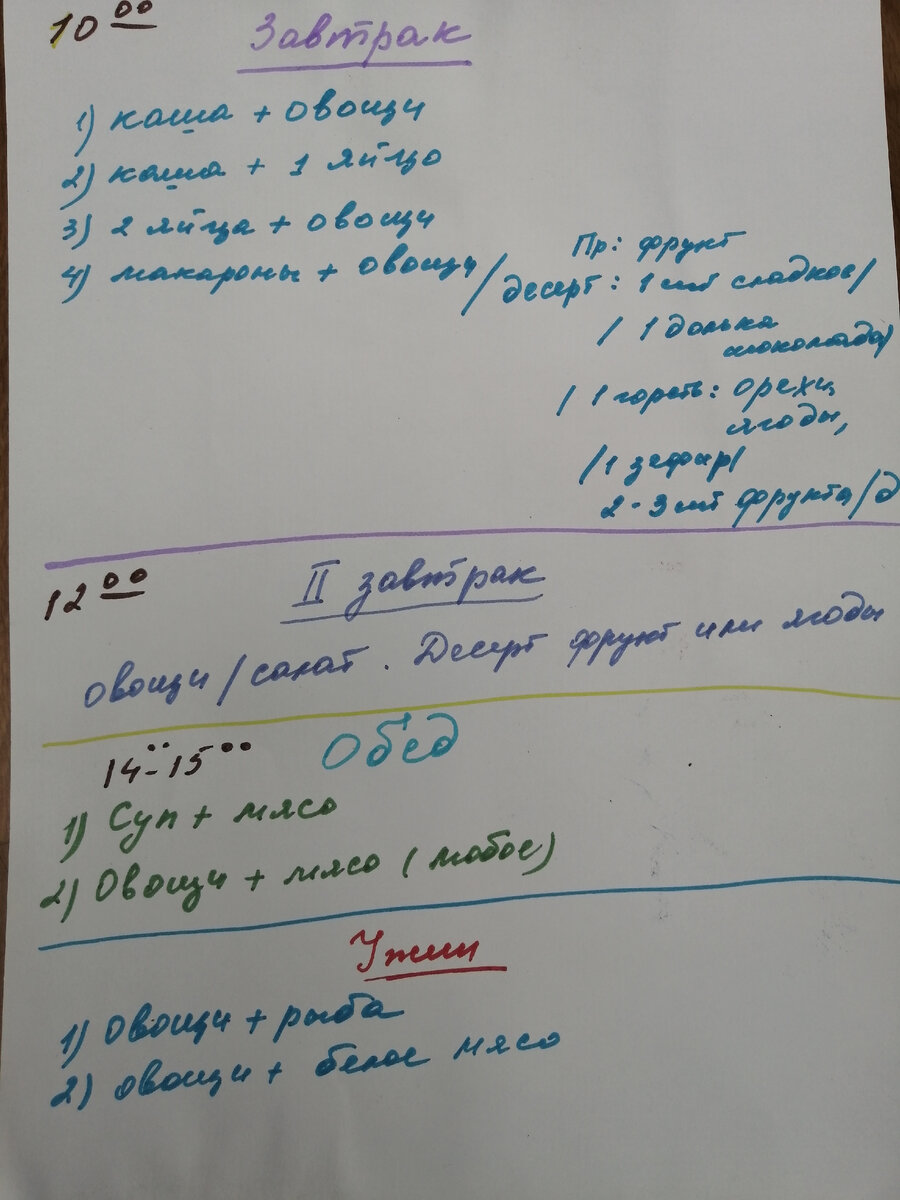 10 00 Завтрак
1) каша + овощи
2) каша + 1 яйцо
3) 2 яйца + овощи
4) макароны + овощи
Пр: фрукт
/ десерт: 1 шт сладкое/
/ 1 долька
шоколада/
/ 1 горсть: орехи,
ягоды,
/1 зефир/
2-3 шт фрукта/
12 00 II завтрак
овощи/салат. Десерт фрукт или ягоды
14-15 00 Обед
1) Суп + мясо
2) Овощи + мясо (любое)
Ужин
1) Овощи + рыба
2) овощи + белое мясо